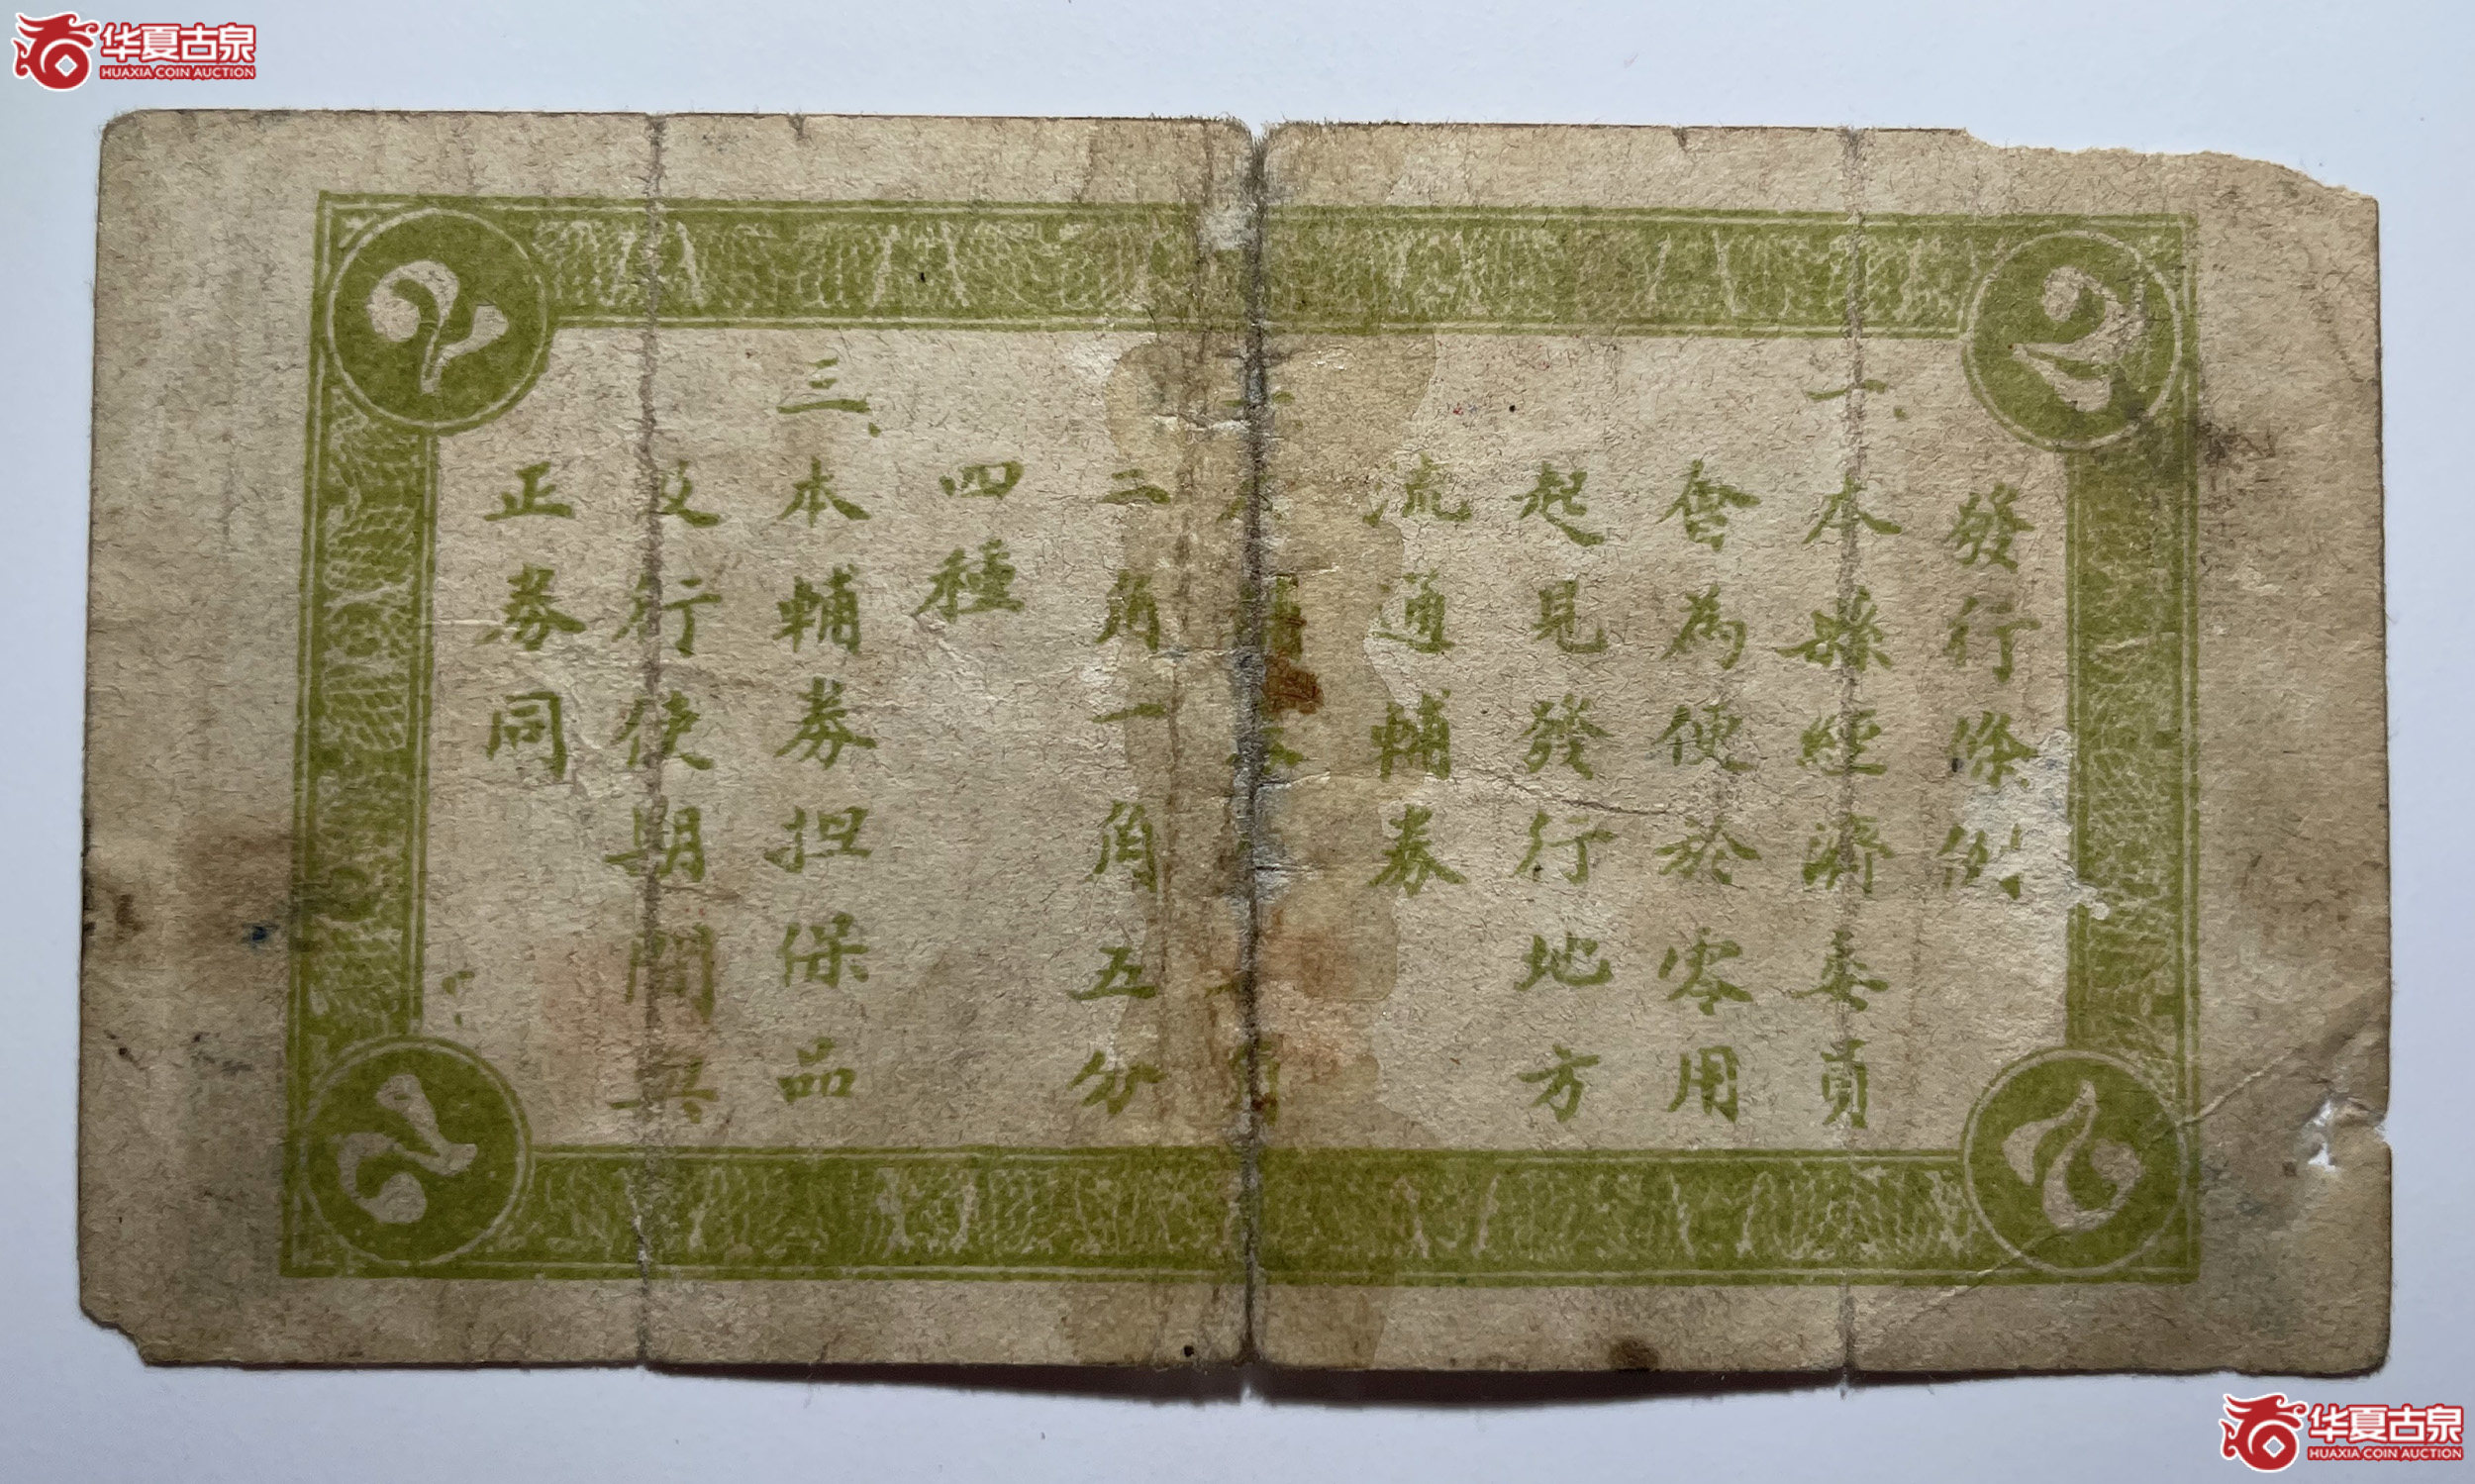 华夏古泉
HUAXIA COIN AUCTION
2
2
發行條例
一、本縣經濟委員
會為使於零用
起見發行地方
流通輔券
二、本輔券
二角一角五分
四種
三、本輔券担保品
及行使期間與
正券同
2
2
华夏古泉
HUAXIA COIN AUCTION